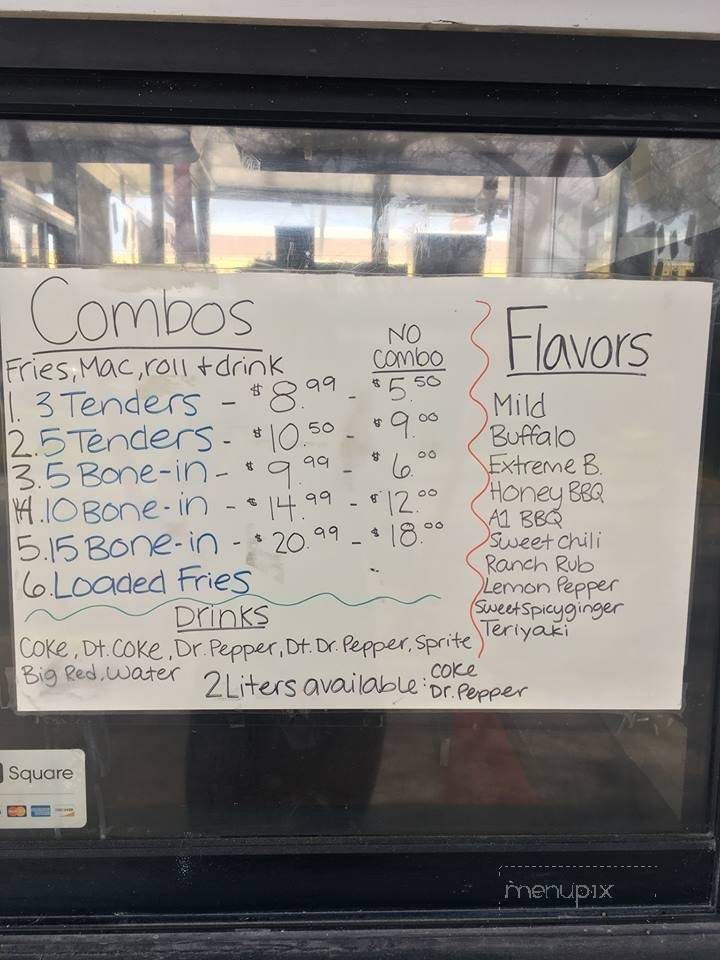 Combos
Fries, Mac, roll + drink
NO
Combo
1. 3 Tenders - $8.99 - $5.50
2. 5 Tenders - $10.50 - $9.00
3. 5 Bone-in - $9.99 - $6.00
4. 10 Bone-in - $14.99 - $12.00
5. 15 Bone-in - $20.99 - $18.00
6. Loaded Fries
Drinks
Coke, Dt. Coke, Dr. Pepper, Dt. Dr. Pepper, Sprite
Big Red, Water
2 Liters available: Coke
Dr. Pepper
Flavors
Mild
Buffalo
Extreme B.
Honey BBQ
A1 BBQ
Sweet Chili
Ranch Rub
Lemon Pepper
Sweet Spicy ginger
Teriyaki
Square
menupix